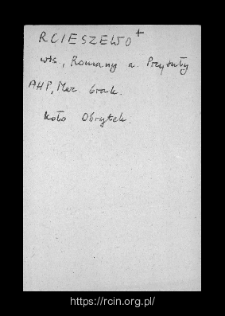 RCIESZEWO +
wś, Romany a Przytuły
AHP, Maz brak.
koło Obrytek
https://rcin.org.pl/